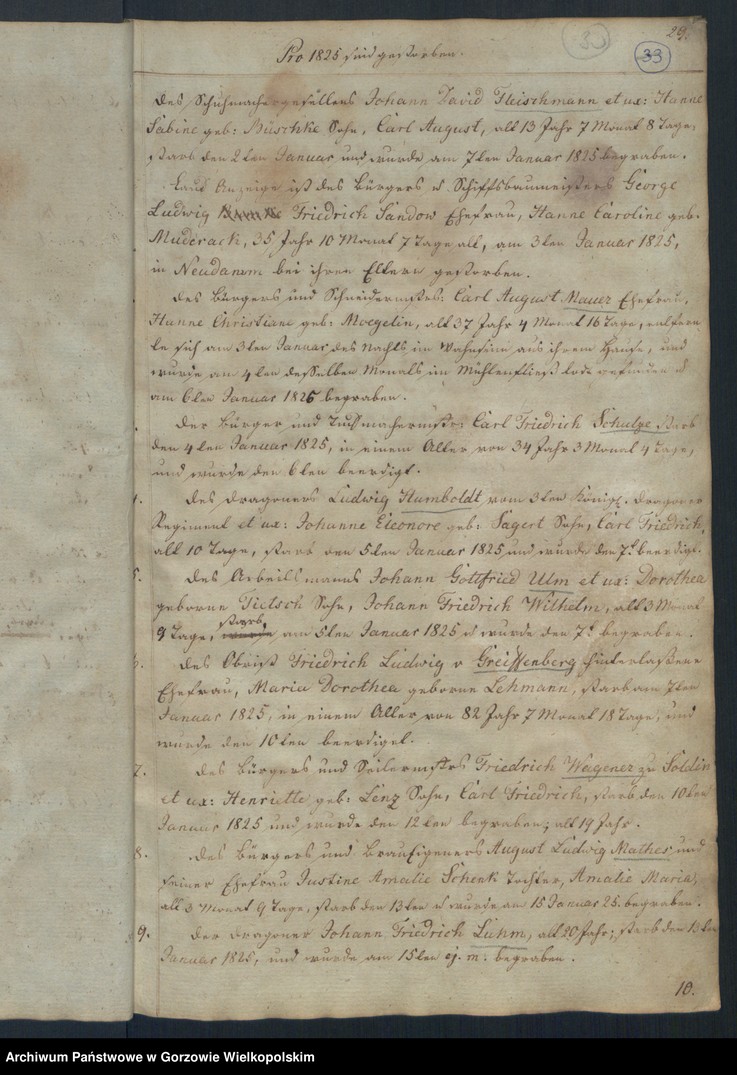 29.
30
33
Pro 1825 sind gestorben.
des Schuhmachergesellens Johann David Fleischmann et ux: Hanne
Sabine geb: Büschke Sohn, Carl August, alt 13 Jahr 7 Monat 8 Tage,
starb den 2ten Januar und wurde am 7ten Januar 1825 begraben.
Laut Anzeige ist des Bürgers u Schiffsbaumeisters George
Ludwig Friedrich Sandow Ehefrau, Hanne Caroline geb:
Muderack, 35 Jahr 10 Monat 7 Tage alt, am 3ten Januar 1825,
in Neudamm bei ihren Eltern gestorben.
des Bürgers und Schneidermstrs: Carl August Mauer Ehefrau,
Hanne Christiane geb: Moegelin, alt 37 Jahr 4 Monat 16 Tage, entfern
te sich am 3ten Januar des Nachts im Wahnsinn aus ihrem Hause, und
wurde am 4ten desselben Monats im Mühlenfließ todt gefunden u
am 6ten Januar 1825 begraben.
Der Bürger und Tuchmachermstr: Carl Friedrich Schulze starb
den 4ten Januar 1825, in einem Alter von 34 Jahr 3 Monat 4 Tage,
und wurde den 6ten beerdigt.
des Dragoners Ludwig Humboldt vom 3ten Königl. Dragoner
Regiment et ux: Johanne Eleonore geb: Sagert Sohn, Carl Friedrich,
alt 10 Tage, starb den 5ten Januar 1825 und wurde den 7t beerdigt.
5. des Arbeitsmanns Johann Gottfried Ulm et ux: Dorothea
geborne Tietsch Sohn, Johann Friedrich Wilhelm, alt 3 Monat
starb
9 Tage, wurde am 5ten Januar 1825 u wurde den 7t begraben.
6. des Obrist Friedrich Ludwig v Greiffenberg hinterlaßene
Ehefrau, Maria Dorothea geborne Lehmann, starb am 7ten
Januar 1825, in einem Alter von 82 Jahr 7 Monat 18 Tage, und
wurde den 10ten beerdiget.
7. des Bürgers und Seilermstrs Friedrich Wagener zu Soldin
et ux: Henriette geb: Lenz Sohn, Carl Friedrich, starb den 10ten
Januar 1825 und wurde den 12ten begraben; alt 19 Jahr.
8. des Bürgers und Braueigeners August Ludwig Mathes und
seiner Ehefrau Justine Amalie Schenk Tochter, Amalie Maria,
alt 3 Monat 9 Tage, starb den 13ten u wurde am 15 Januar 25. begraben.
9. Der Dragoner Johann Friedrich Lühm, alt 20 Jahr; starb den 13ten
Januar 1825, und wurde am 15ten ej. m: begraben.
10.
Archiwum Państwowe w Gorzowie Wielkopolskim